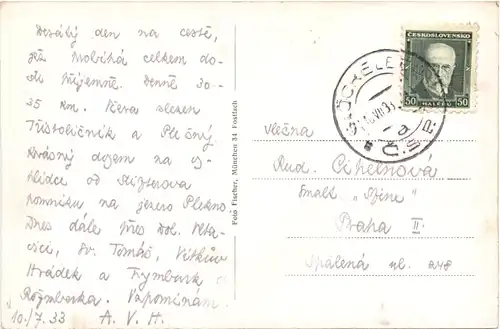 Desátý den na cestě,
jež probíhá celkem do-
sti příjemně. Denně 30-
35 km. Včera slezen
Třístoličník a Plechý.
Krásný dojem na vy-
hlídce od Stifterova
pomníku na jezero Plekno
Dnes dále přes Dol. Vlta-
vici, Sv. Tomáš, Vítkův
Hrádek a Frymburk do
Rožmberka. Vzpomínám.
10./7.33 A. V. H.
Foto Fischer, München 34 Postfach
ČESKOSLOVENSKO
50 HALÉŘŮ 50
Slečna
Rud. Cihelnová
Smalt. "Sfinx"
Praha II.
Spálená ul.